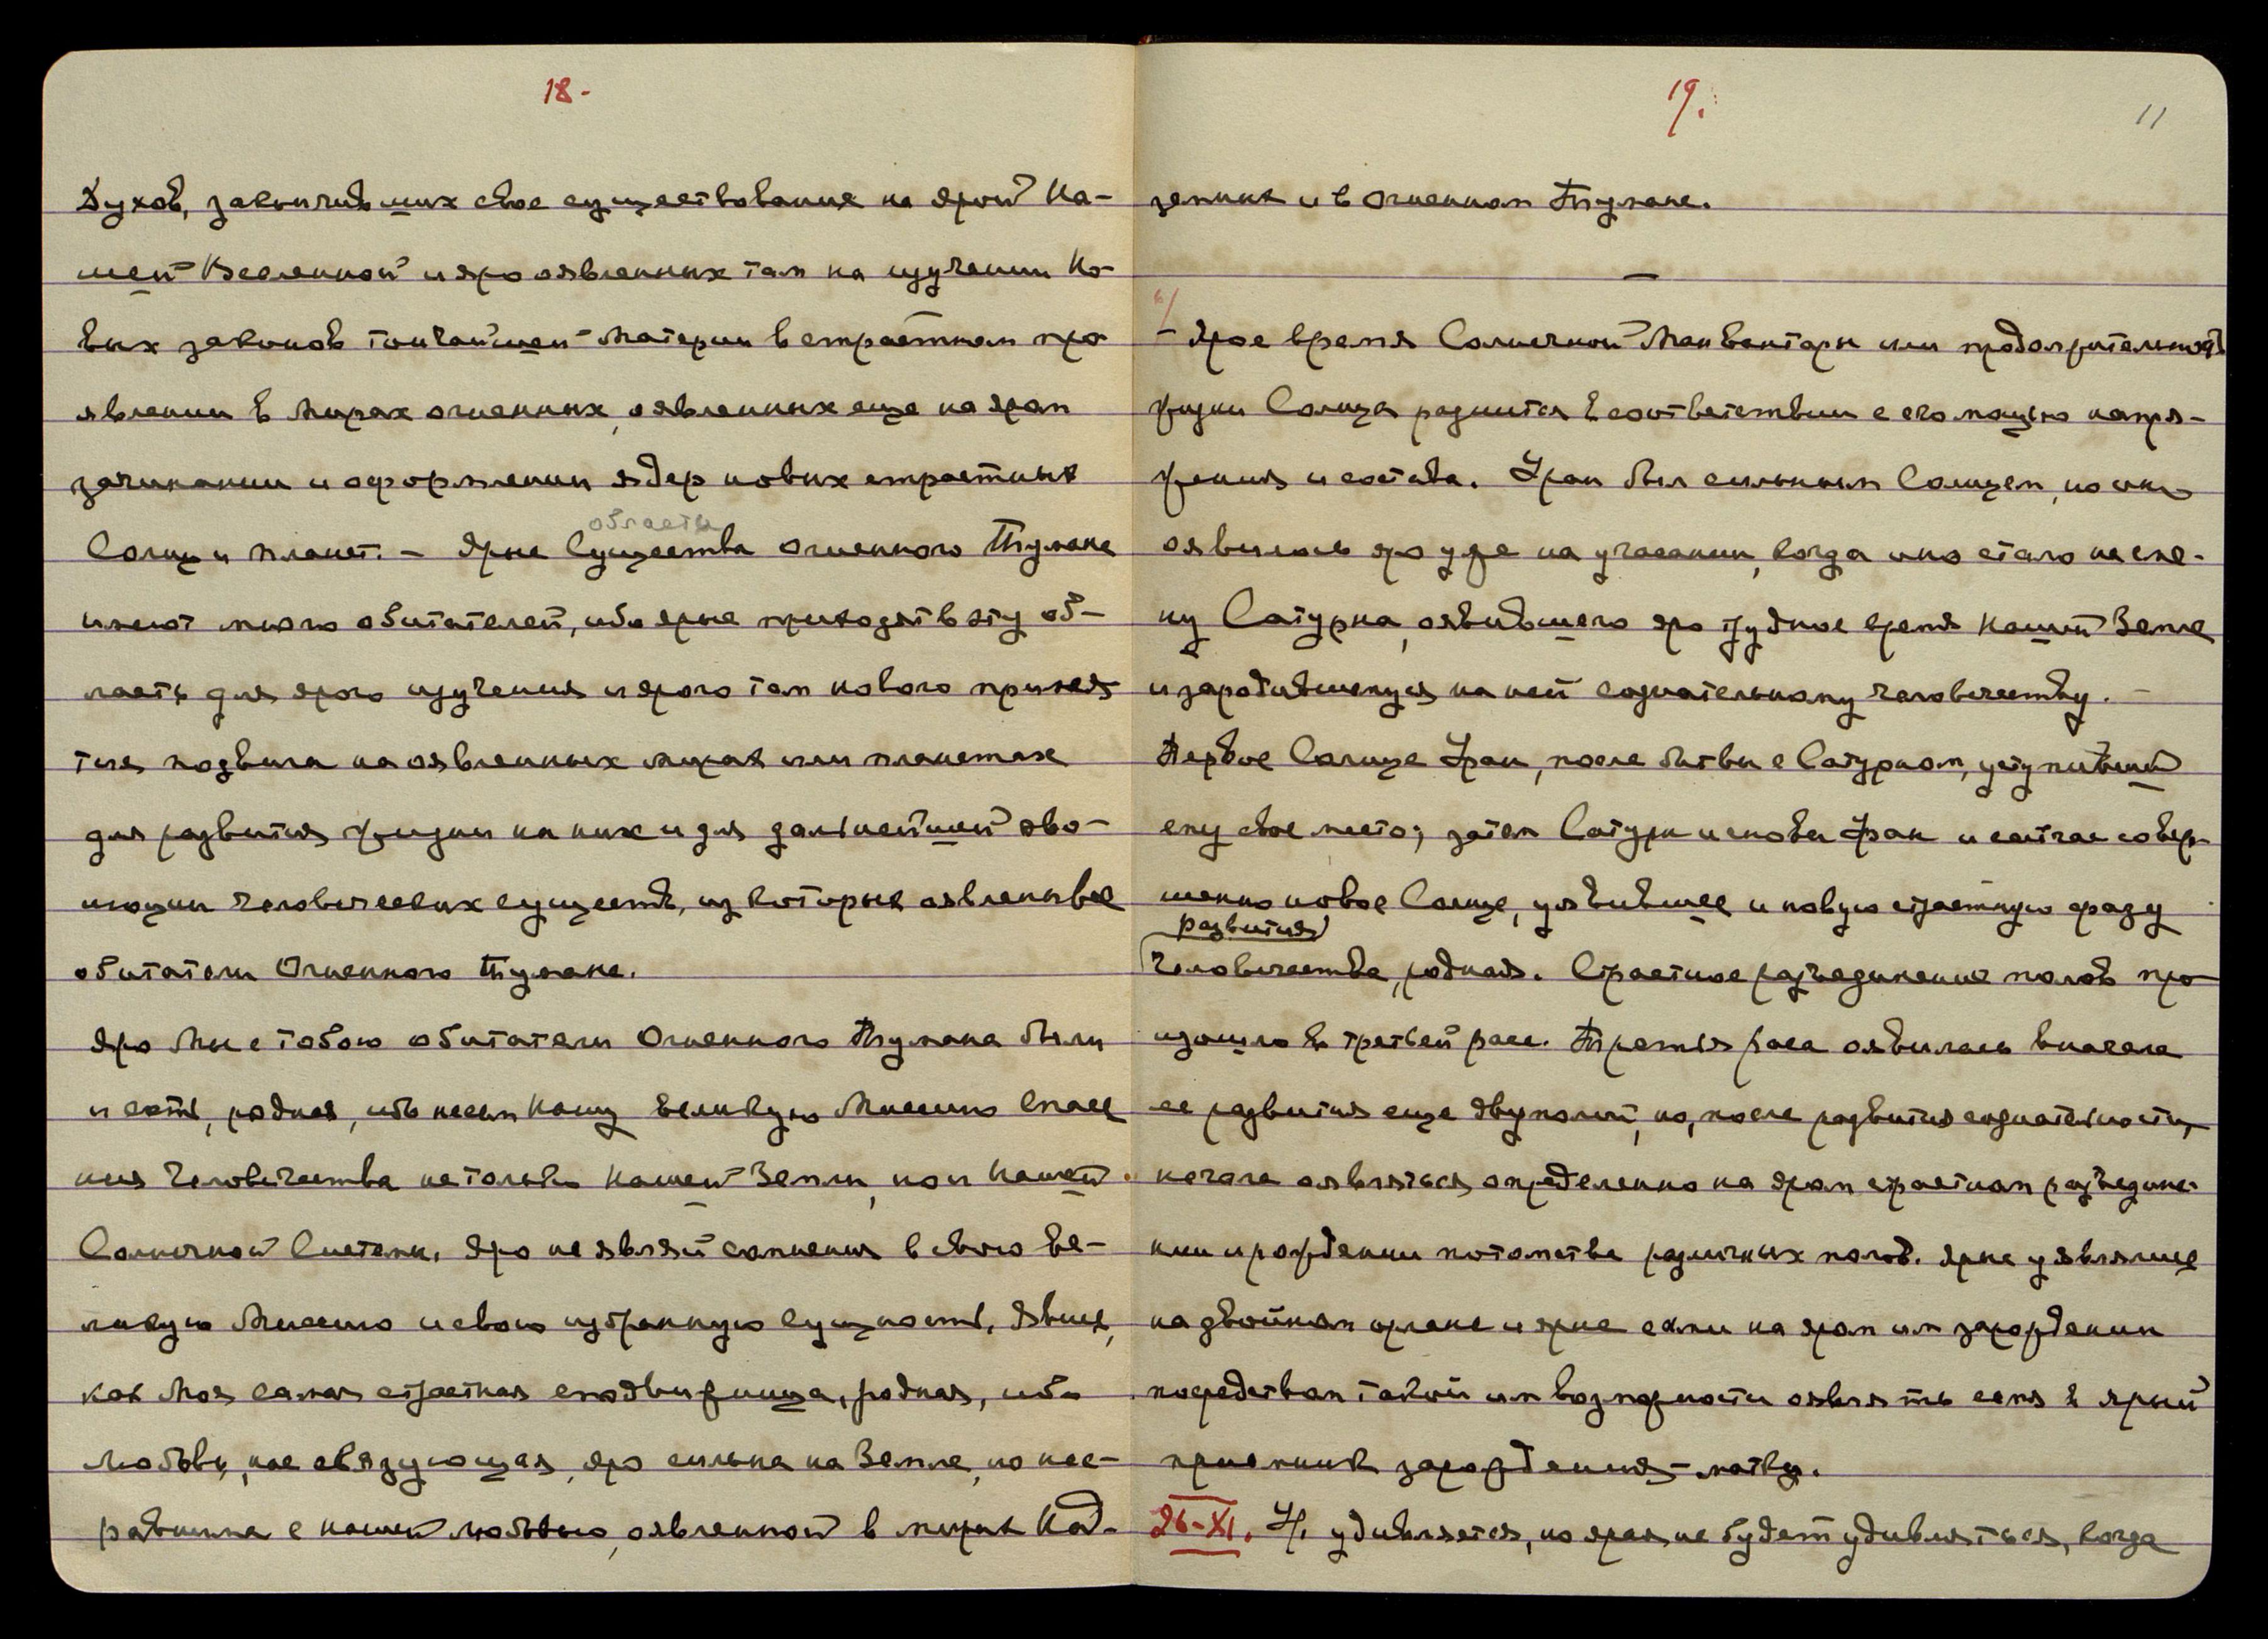 18-
Духов, закончивших свое существование на ярой На-
шей Вселенной и яро оявленных там на изучении Но-
вых законов тончайшей Материи в страстном про-
явлении в Мирах огненных, оявленных еще на яром
зачинании и оформлении ядер новых страстных
Солнц и планет. - Ярые Существа Огненного Тумана
области
имеют много обитателей, ибо ярые приходят в эту об-
ласть для ярого изучения и ярого там нового приня-
тия подвига на оявленных мирах или планетах
для развития жизни на них и для дальнейшей эво-
люции человеческих существ, из которых оявлены все
обитатели Огненного Тумана.
Яро Мы с тобою обитатели Огненного Тумана были
и есть, родная, ибо несем Нашу Великую Миссию спасе
ния Человечества не только Нашей Земли, но и Нашей
Солнечной Системы. Яро не являй сомнения в свою Ве-
ликую Миссию и свою избранную сущность,
как Моя самая страстная сподвижница, родная, ибо
любовь, нас связующая, яро сильна на Земле, но не с-
равнима с нашей любовью, оявленной в мирах Над-
19.
11
земных и в Огненном Тумане.
—
- Ярое время Солнечной Манвантары или продолжительность
жизни Солнца разнится в соответствии с его мощью напря-
жения и состава. Уран был сильным Солнцем, но оно
оявилось яро уже на угасании, когда оно стало на сме-
ну Сатурна, оявившего яро трудное время нашей Земле
и зародившемуся на ней сознательному человечеству. -
Первое Солнце Уран, после битвы с Сатурном, уступивший
ему свое место; затем Сатурн и снова Уран и сейчас совер-
шенно новое Солнце, уявившее и новую страстную фазу
развития
Человечества, родная. Страстное разъединение полов про
изошло в третьей расе. Третья раса оявилась вначале
ее развития еще двуполой, но, после развития сознательности,
начала оявляться определенно на яром страстном разъедине-
нии и рождении потомства различных полов. Ярые уявлялись
на двойном органе и ярые сами на яром им зарождении
посредством такой им возможности оявлять семя в ярый
приемник зарождения - матку.
26-XI. У. удивляется, но ярая не будет удивляться, когда